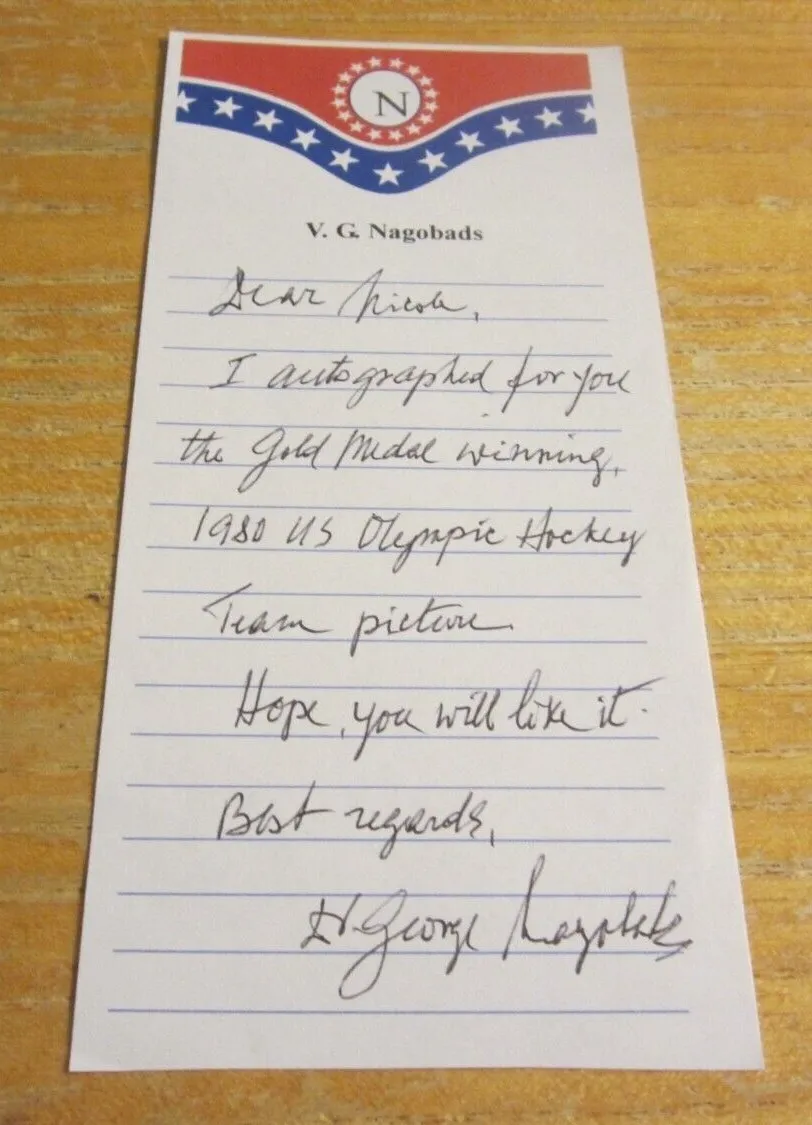 N
V. G. Nagobads
Dear Nicole,
I autographed for you
the Gold Medal winning,
1980 US Olympic Hockey
Team picture.
Hope, you will like it.
Best regards,
Dr. George Nagobads